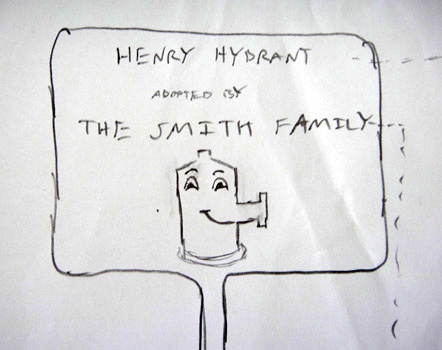 HENRY HYDRANT
ADOPTED BY
THE SMITH FAMILY